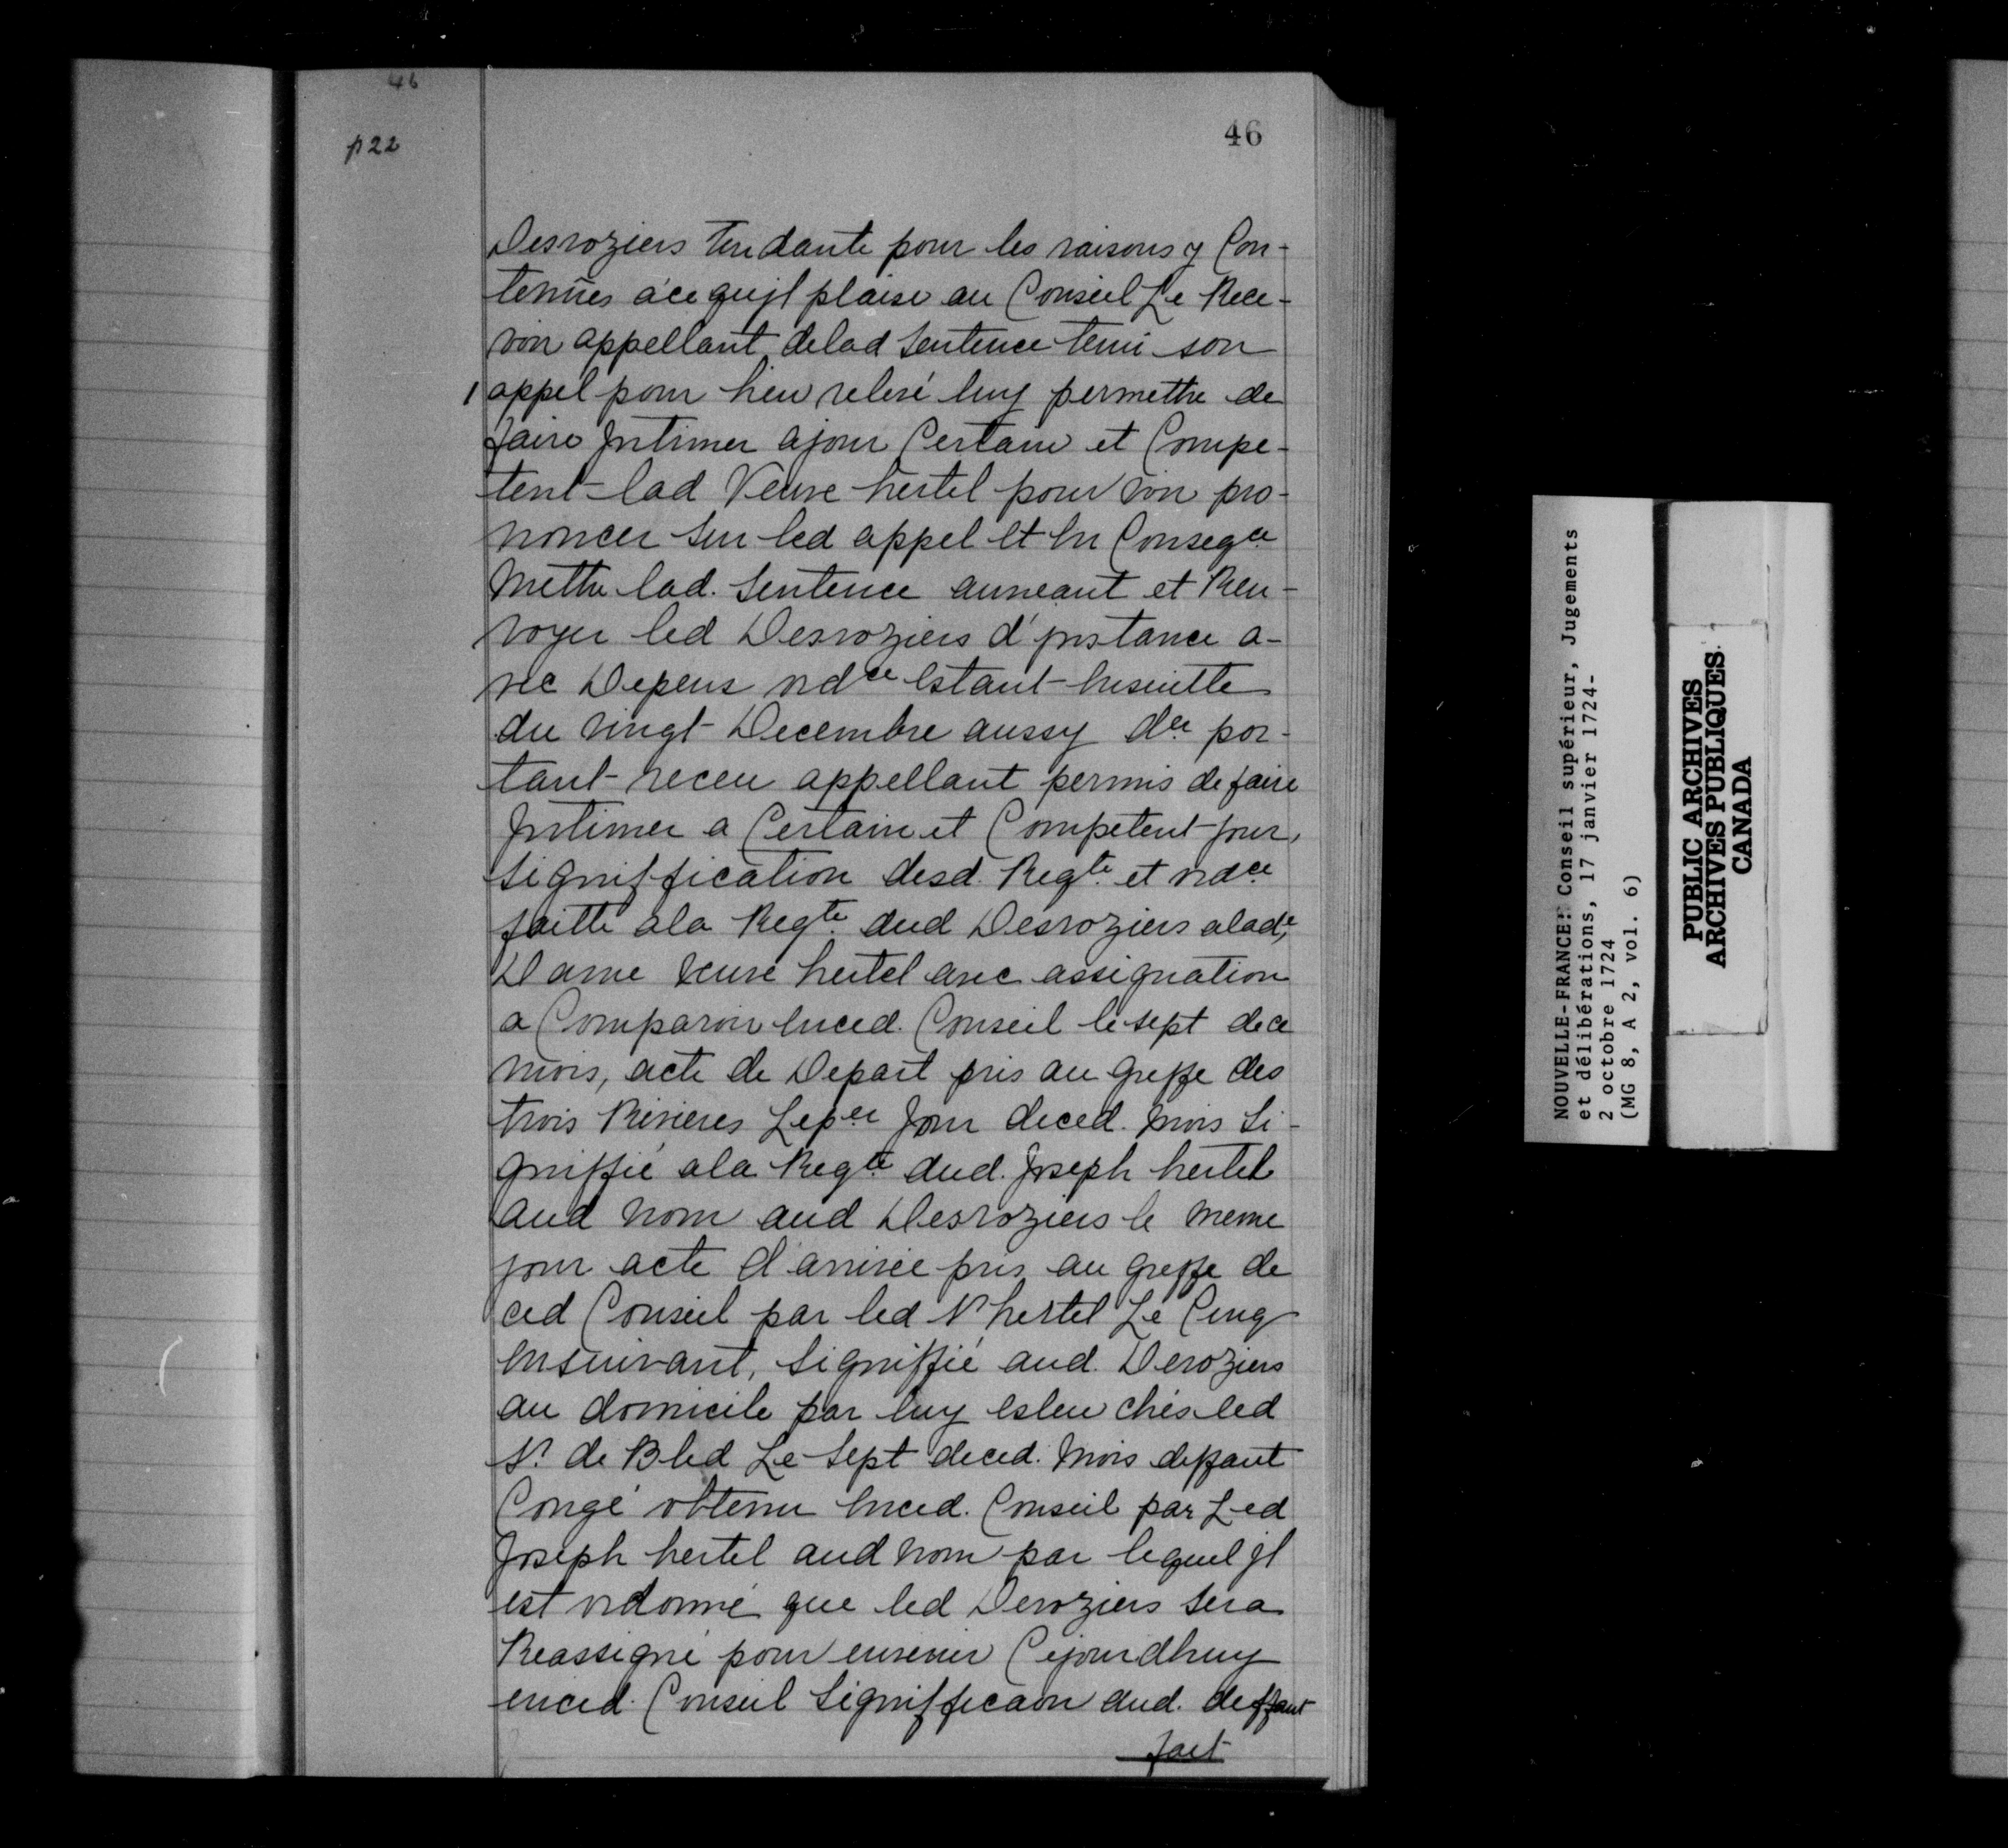 46
p22
46
Desroziers tendante pour les raisons y Con-
tenües a'ce qujl plaise au Conseil Le Rece-
voir appellant delad Sentence tenir son
1 appel pour bien relevé luy permettre de
faire Jntimer a jour Certain et Compe-
tent lad Veuve hertel pour voir pro-
noncer Sur led appel et En Conseq.ce
Mettre lad. Sentence anneant et Ren-
voyer led Desroziers d'jnstance a-
vec Depens ord.ce Estant Ensuitte
du vingt Decembre aussy d.er por-
tant receu appellant permis de faire
Jntimer a Certain et Competent jour,
Signiffication desd. Reqte. et ord.ce
faitte ala Reqte. dud Desroziers alad.e
Dame Veuve hertel avec assignation
a Comparoir Enced. Conseil le Sept de ce
mois, acte de Depart pris au greffe des
trois Rivieres Le p.er Jour deced. mois Si-
gniffié ala Reqte. dud. Joseph hertel
aud nom aud Desroziers le meme
jour acte d'arrivée pris au greffe de
ced Conseil par led Sr hertel Le Cinq
Ensuivant, Signiffié aud. Deroziers
au domicile par luy esleu chés led
Sr. de Bled Le Sept deced. mois deffaut
Congé obtenu Enced. Conseil par Led
Joseph hertel aud nom par lequel jl
est ordonné que led Deroziers Sera
Reassigné pour envenir Cejourdhuy
enced. Conseil Signifficaon dud. deffaut
fait
NOUVELLE-FRANCE: Conseil supérieur, Jugements
et délibérations, 17 janvier 1724-
2 octobre 1724
(MG 8, A 2, vol. 6)
PUBLIC ARCHIVES
ARCHIVES PUBLIQUES
CANADA